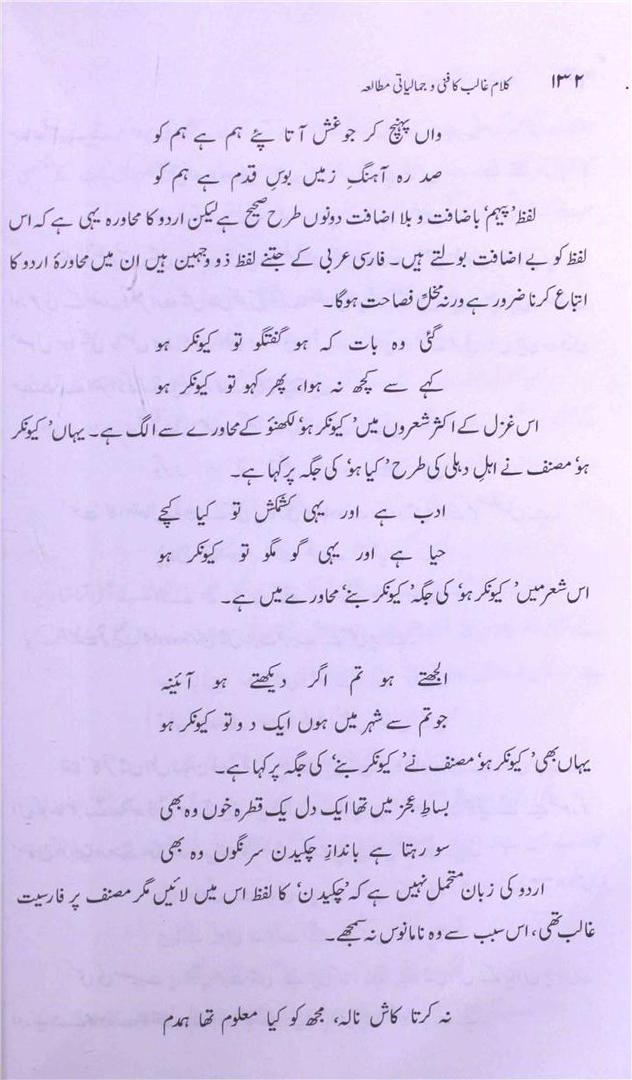 ۱۳۲ کلام غالب کا فنی و جمالیاتی مطالعہ
واں پہنچ کر جو غش آتا پئے ہم ہے ہم کو
صد رہ آہنگِ زمیں بوسِ قدم ہے ہم کو
لفظ ’پیہم‘ باضافت و بلا اضافت دونوں طرح صحیح ہے لیکن اردو کا محاورہ یہی ہے کہ اس
لفظ کو بے اضافت بولتے ہیں۔ فارسی عربی کے جتنے لفظ ذو وجہین ہیں ان میں محاورۂ اردو کا
اتباع کرنا ضرور ہے ورنہ مخلِّ فصاحت ہوگا۔
گئی وہ بات کہ ہو گفتگو تو کیونکر ہو
کہے سے کچھ نہ ہوا، پھر کہو تو کیونکر ہو
اس غزل کے اکثر شعروں میں ’کیونکر ہو‘ لکھنؤ کے محاورے سے الگ ہے۔ یہاں ’کیونکر
ہو‘ مصنف نے اہلِ دہلی کی طرح ’کیا ہو‘ کی جگہ پر کہا ہے۔
ادب ہے اور یہی کشمکش تو کیا کیجے
حیا ہے اور یہی گو مگو تو کیونکر ہو
اس شعر میں ’کیونکر ہو‘ کی جگہ ’کیونکر بنے‘ محاورے میں ہے۔
الجھتے ہو تم اگر دیکھتے ہو آئینہ
جو تم سے شہر میں ہوں ایک دو تو کیونکر ہو
یہاں بھی ’کیونکر ہو‘ مصنف نے ’کیونکر بنے‘ کی جگہ پر کہا ہے۔
بساطِ عجز میں تھا ایک دل یک قطرہ خوں وہ بھی
سو رہتا ہے باندازِ چکیدن سرنگوں وہ بھی
اردو کی زبان متحمل نہیں ہے کہ ’چکیدن‘ کا لفظ اس میں لائیں مگر مصنف پر فارسیت
غالب تھی، اس سبب سے وہ نامانوس نہ سمجھے۔
نہ کرتا کاش نالہ، مجھ کو کیا معلوم تھا ہمدم